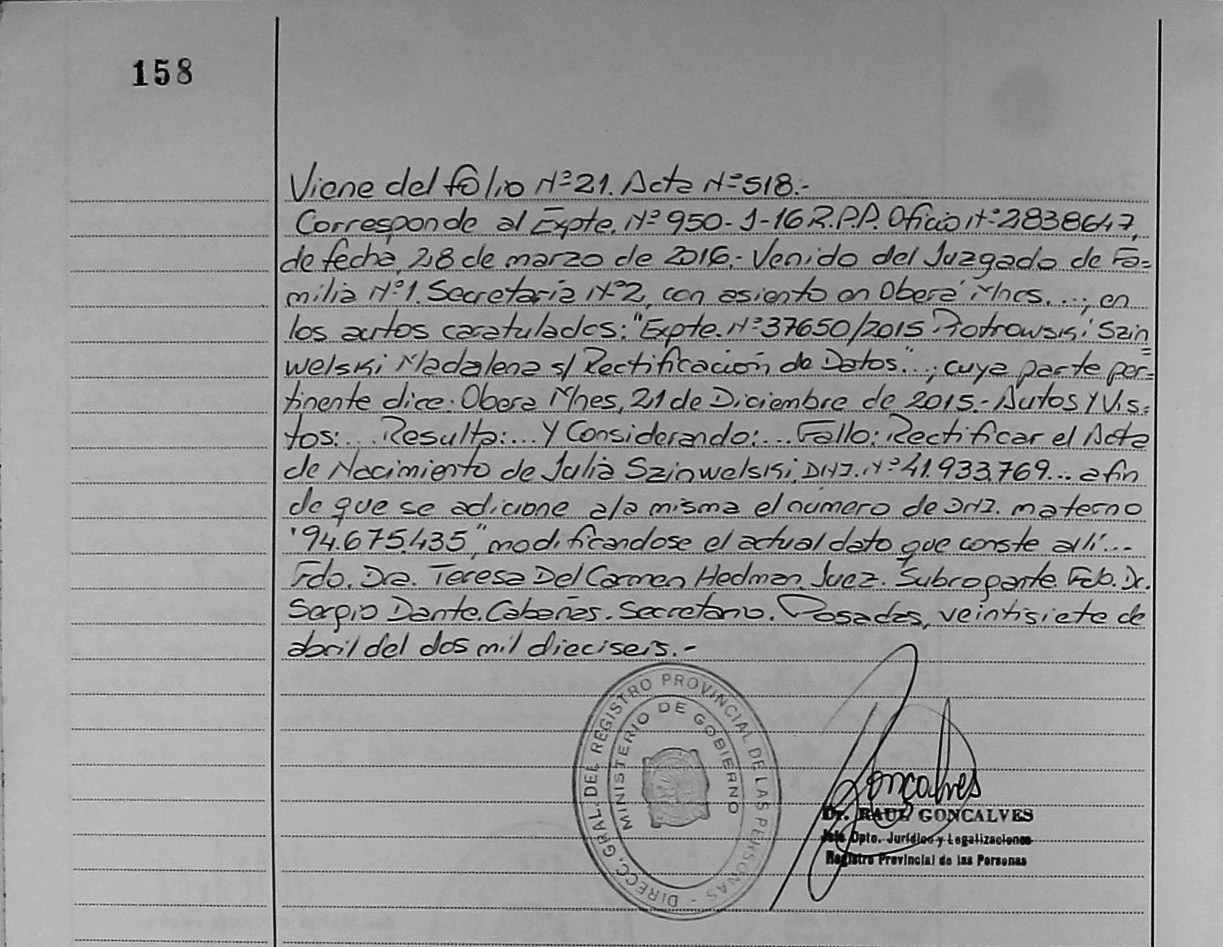 158
Viene del folio Nº 21. Acta Nº 518.-
Corresponde al Expte. Nº 950-J-16 R.P.P. Oficio Nº 2838647,
de fecha, 28 de marzo de 2016.- Venido del Juzgado de Fa=
milia Nº1. Secretaría Nº2, con asiento en Oberá Mnes....; en
los autos caratulados: "Expte. Nº 37650/2015 Piotrowski Szin=
welski Madalena s/ Rectificación de Datos"...; cuya parte per=
tinente dice: Obera Mnes, 21 de Diciembre de 2015.- Autos y Vis=
tos:... Resulta:... Y Considerando:... Fallo: Rectificar el Acta
de Nacimiento de Julia Szinwelski, DNI. Nº 41.933.769... afin
de que se adicione a la misma el número de DNI. materno
"94.675.435", modificandose el actual dato que conste allí...
Fdo. Dra. Teresa Del Carmen Hedman. Juez. Subrogante. Fdo. Dr.
Sergio Dante. Cabañas. Secretario. Posadas, veintisiete de
abril del dos mil dieciseis.-
DIRECC. GRAL. DEL REGISTRO PROVINCIAL DE LAS PERSONAS -
MINISTERIO DE GOBIERNO
Gonçalves
Dr. RAUL GONCALVES
Jefe Dpto. Jurídico y Legalizaciones
Registro Provincial de las Personas